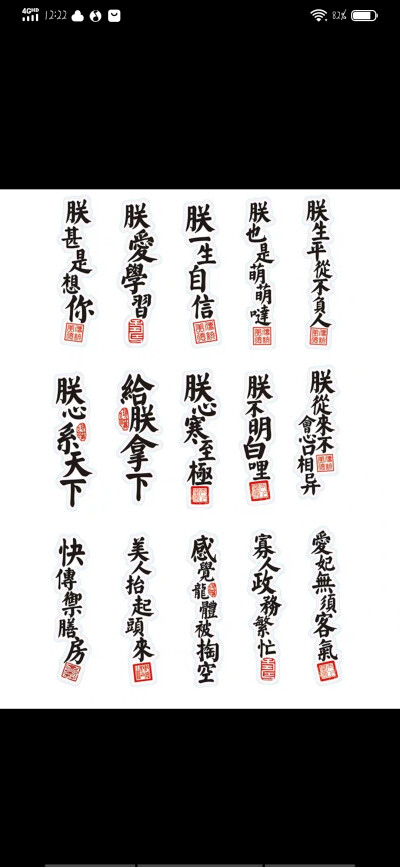 12:22
82%
朕甚是想你
朕愛學習
朕一生自信
朕也是萌萌噠
朕生平從不負人
朕心系天下
給朕拿下
朕心寒至極
朕不明白哩
朕從來不會心口相异
快傳禦膳房
美人抬起頭來
感覺龍體被掏空
寡人政務繁忙
愛妃無須客氣